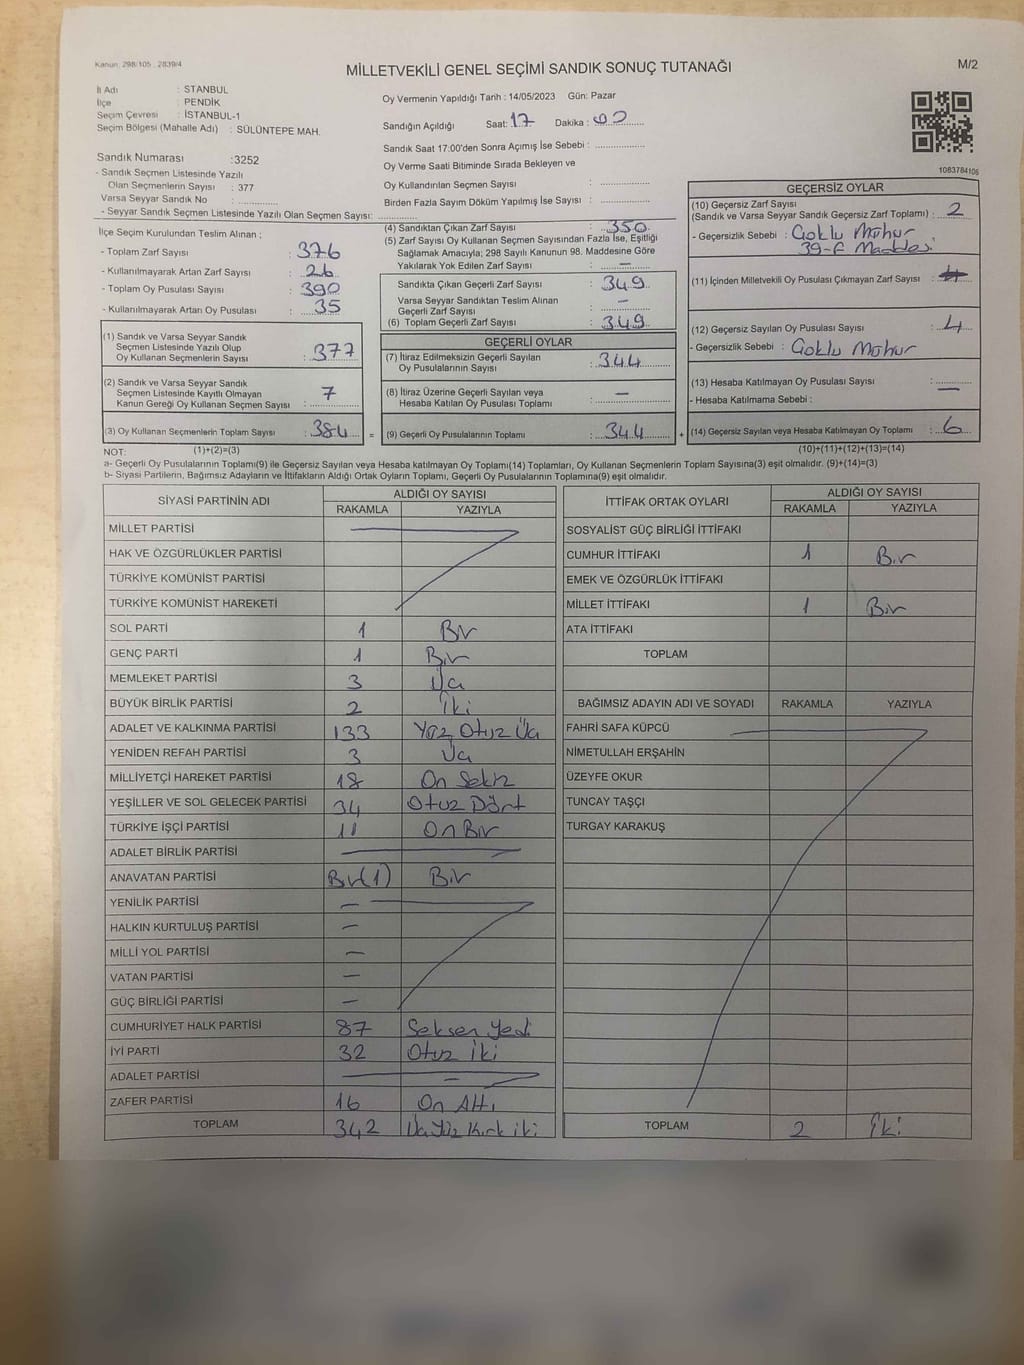 Kanun: 298/105 , 2839/4
MİLLETVEKİLİ GENEL SEÇİMİ SANDIK SONUÇ TUTANAĞI
M/2
İl Adı : STANBUL
İlçe : PENDİK
Seçim Çevresi : İSTANBUL-1
Seçim Bölgesi (Mahalle Adı) : SÜLÜNTEPE MAH.
Sandık Numarası :3252
- Sandık Seçmen Listesinde Yazılı
Olan Seçmenlerin Sayısı : 377
Varsa Seyyar Sandık No :
- Seyyar Sandık Seçmen Listesinde Yazılı Olan Seçmen Sayısı:
Oy Vermenin Yapıldığı Tarih : 14/05/2023 Gün: Pazar
Sandığın Açıldığı Saat: 17 Dakika :
Sandık Saat 17:00'den Sonra Açımış İse Sebebi :
Oy Verme Saati Bitiminde Sırada Bekleyen ve
Oy Kullandırılan Seçmen Sayısı :
Birden Fazla Sayım Döküm Yapılmış İse Sayısı :
1083784106
İlçe Seçim Kurulundan Teslim Alınan ;
- Toplam Zarf Sayısı : 376
- Kullanılmayarak Artan Zarf Sayısı : 26
- Toplam Oy Pusulası Sayısı : 390
- Kullanılmayarak Artan Oy Pusulası : 35
(1) Sandık ve Varsa Seyyar Sandık
Seçmen Listesinde Yazılı Olup
Oy Kullanan Seçmenlerin Sayısı : 377
(2) Sandık ve Varsa Seyyar Sandık
Seçmen Listesinde Kayıtlı Olmayan
Kanun Gereği Oy Kullanan Seçmen Sayısı : 7
(3) Oy Kullanan Seçmenlerin Toplam Sayısı : 384 =
(4) Sandıktan Çıkan Zarf Sayısı : 350
(5) Zarf Sayısı Oy Kullanan Seçmen Sayısından Fazla İse, Eşitliği
Sağlamak Amacıyla; 298 Sayılı Kanunun 98. Maddesine Göre
Yakılarak Yok Edilen Zarf Sayısı : —
Sandıkta Çıkan Geçerli Zarf Sayısı : 349
Varsa Seyyar Sandıktan Teslim Alınan
Geçerli Zarf Sayısı : —
(6) Toplam Geçerli Zarf Sayısı : 349
GEÇERLİ OYLAR
(7) İtiraz Edilmeksizin Geçerli Sayılan
Oy Pusulalarının Sayısı : 344
(8) İtiraz Üzerine Geçerli Sayılan veya
Hesaba Katılan Oy Pusulası Toplamı : —
(9) Geçerli Oy Pusulalarının Toplamı : 344 +
GEÇERSİZ OYLAR
(10) Geçersiz Zarf Sayısı
(Sandık ve Varsa Seyyar Sandık Geçersiz Zarf Toplamı) : 2
- Geçersizlik Sebebi : Çoklu Mühür
39-F Maddesi
(11) İçinden Milletvekili Oy Pusulası Çıkmayan Zarf Sayısı :
(12) Geçersiz Sayılan Oy Pusulası Sayısı : 4
- Geçersizlik Sebebi : Çoklu Mühür
(13) Hesaba Katılmayan Oy Pusulası Sayısı : —
- Hesaba Katılmama Sebebi :
(14) Geçersiz Sayılan veya Hesaba Katılmayan Oy Toplamı : 6
NOT: (1)+(2)=(3) (10)+(11)+(12)+(13)=(14)
a- Geçerli Oy Pusulalarının Toplamı(9) ile Geçersiz Sayılan veya Hesaba katılmayan Oy Toplamı(14) Toplamları, Oy Kullanan Seçmenlerin Toplam Sayısına(3) eşit olmalıdır. (9)+(14)=(3)
b- Siyasi Partilerin, Bağımsız Adayların ve İttifakların Aldığı Ortak Oyların Toplamı, Geçerli Oy Pusulalarının Toplamına(9) eşit olmalıdır.
SİYASİ PARTİNİN ADI ALDIĞI OY SAYISI
RAKAMLA YAZIYLA
MİLLET PARTİSİ
HAK VE ÖZGÜRLÜKLER PARTİSİ
TÜRKİYE KOMÜNİST PARTİSİ
TÜRKİYE KOMÜNİST HAREKETİ
SOL PARTİ 1 Bir
GENÇ PARTİ 1 Bir
MEMLEKET PARTİSİ 3 Üç
BÜYÜK BİRLİK PARTİSİ 2 İki
ADALET VE KALKINMA PARTİSİ 133 Yüz Otuz Üç
YENİDEN REFAH PARTİSİ 3 Üç
MİLLİYETÇİ HAREKET PARTİSİ 18 On Sekiz
YEŞİLLER VE SOL GELECEK PARTİSİ 34 Otuz Dört
TÜRKİYE İŞÇİ PARTİSİ 11 On Bir
ADALET BİRLİK PARTİSİ
ANAVATAN PARTİSİ Bir(1) Bir
YENİLİK PARTİSİ —
HALKIN KURTULUŞ PARTİSİ —
MİLLİ YOL PARTİSİ —
VATAN PARTİSİ —
GÜÇ BİRLİĞİ PARTİSİ —
CUMHURİYET HALK PARTİSİ 87 Seksen Yedi
İYİ PARTİ 32 Otuz İki
ADALET PARTİSİ —
ZAFER PARTİSİ 16 On Altı
TOPLAM 342 Üç Yüz Kırk iki
İTTİFAK ORTAK OYLARI ALDIĞI OY SAYISI
RAKAMLA YAZIYLA
SOSYALİST GÜÇ BİRLİĞİ İTTİFAKI
CUMHUR İTTİFAKI 1 Bir
EMEK VE ÖZGÜRLÜK İTTİFAKI
MİLLET İTTİFAKI 1 Bir
ATA İTTİFAKI
TOPLAM
BAĞIMSIZ ADAYIN ADI VE SOYADI RAKAMLA YAZIYLA
FAHRİ SAFA KÜPCÜ
NİMETULLAH ERŞAHİN
ÜZEYFE OKUR
TUNCAY TAŞÇI
TURGAY KARAKUŞ
TOPLAM 2 İki